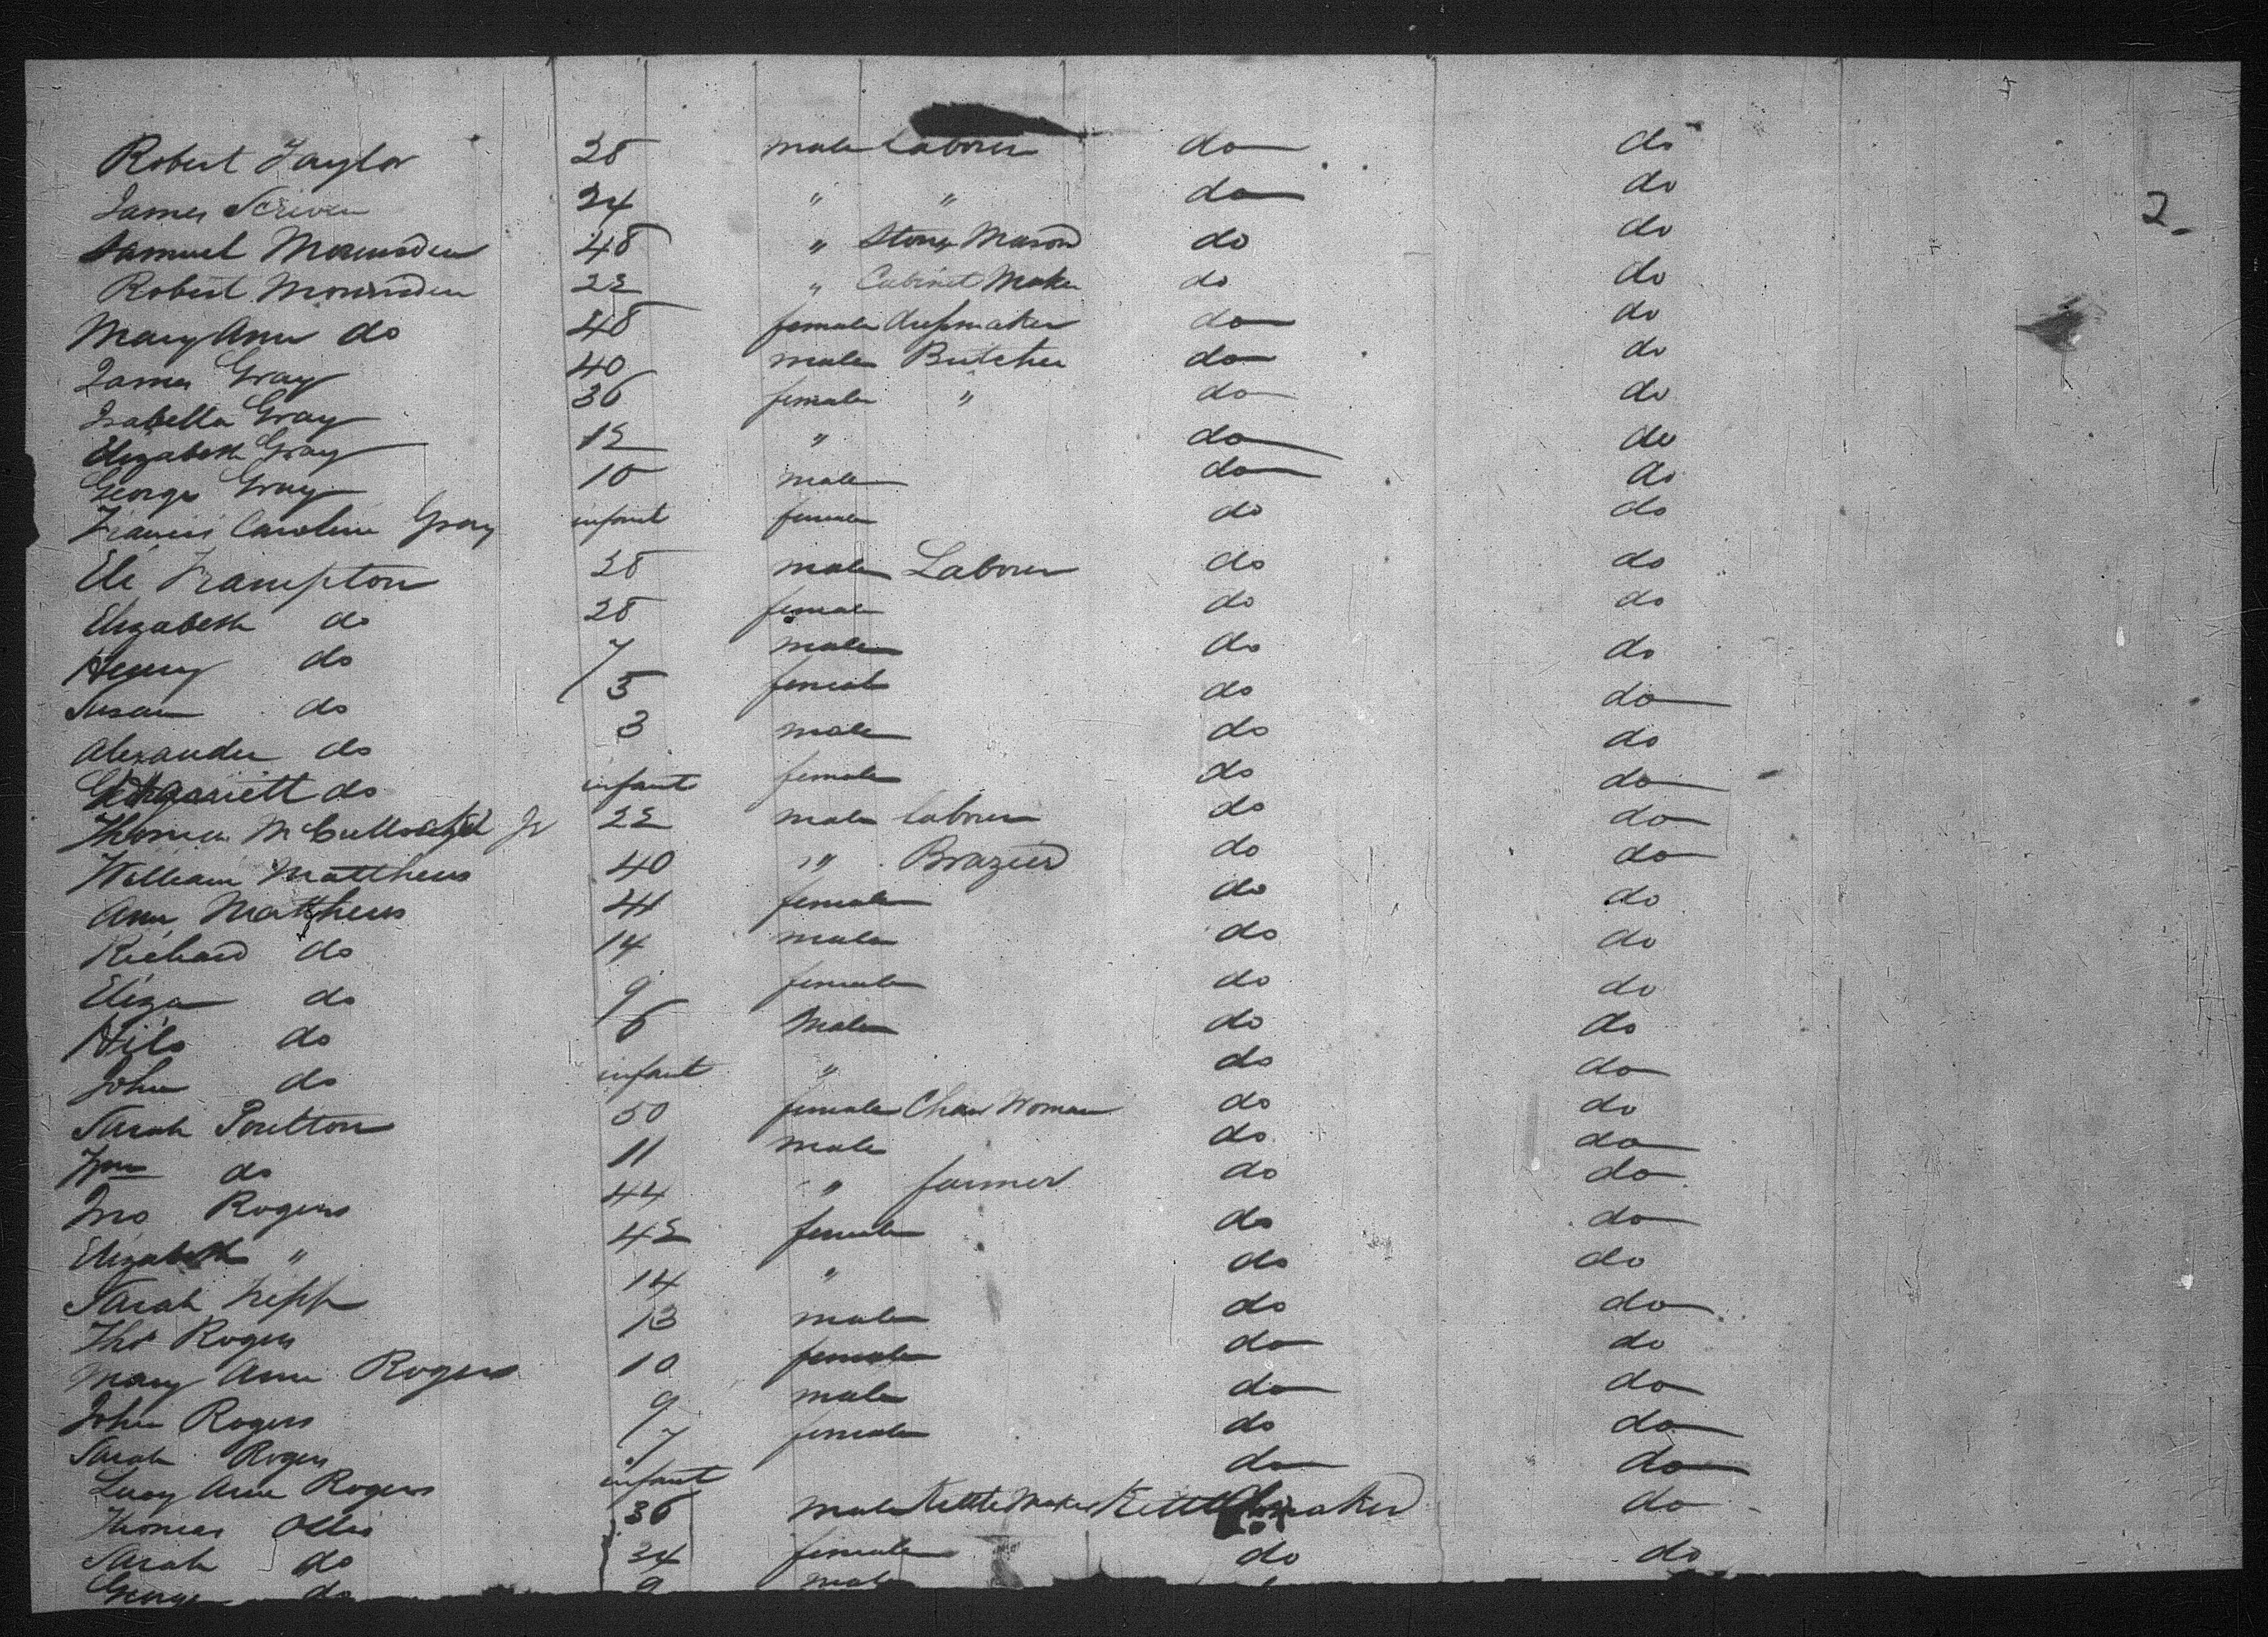 Robert Taylor 28 male Labourer do do
James Scriven 24 " " do do
2
Samuel 48 " Stone Mason do do
Robert 22 " Cabinet Maker do do
Mary Ann do 48 female dressmaker do do
James Gray 40 male Butcher do do
Isabella Gray 36 female " do do
Elizabeth Gray 12 " do do
George Gray 10 male do do
Francis Caroline Gray infant female do do
Eli Frampton 28 male Labourer do do
Elizabeth do 28 female do do
Henry do 7 male do do
Susan do 5 female do do
Alexander do 3 male do do
do infant female do do
Thomas Jr 22 male labourer do do
William Matthews 40 " Brazier do do
Ann Matthews 41 female do do
Richard do 14 male do do
Eliza do 9 female do do
do 6 Male do do
John do infant " do do
Sarah Poulton 50 female Char Woman do do
Wm do 11 male do do
Jno Rogers 44 " farmer do do
Elizabeth " 42 female do do
Sarah 14 " do do
Thos Rogers 13 male do do
Mary Ann Rogers 10 female do do
John Rogers 9 male do do
Sarah Rogers 7 female do do
Lucy Ann Rogers infant do do
Thomas Ollis 36 male Kettle Maker Kettle maker do
Sarah do 34 female do do
George do 9 male